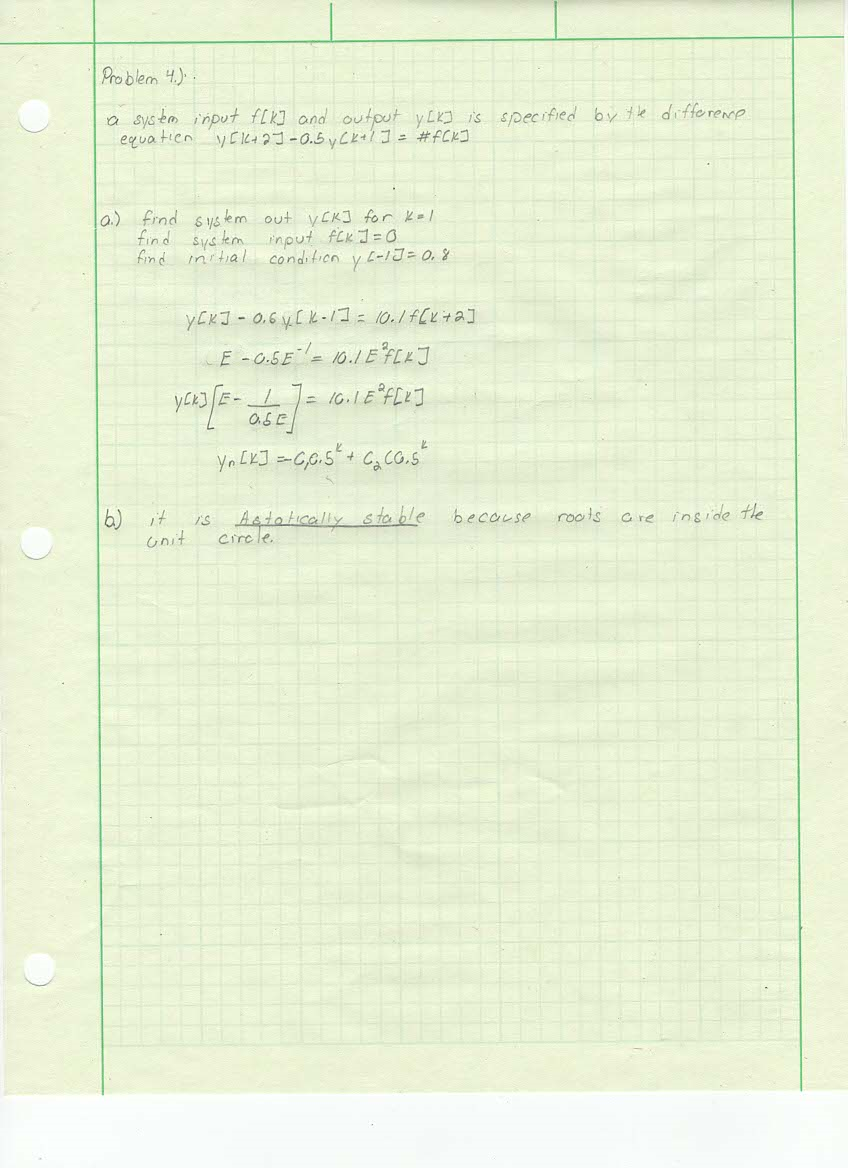 Problem 4.)
a system input f[k] and output y[k] is specified by the difference
equation y[k+2] -0.5y[k+1] = #f[k]
a.) find system out y[k] for k=1
find system input f[k]=0
find initial condition y[-1]=0.8
y[k] - 0.6y[k-1] = 10.1f[k+2]
E - 0.5E⁻¹ = 10.1E²f[k]
y[k][E - 1/0.5E] = 10.1E²f[k]
yn[k] = C₁0.5ᵏ + C₂(0.5ᵏ
b.) it is Astotically stable because roots are inside the
unit circle.